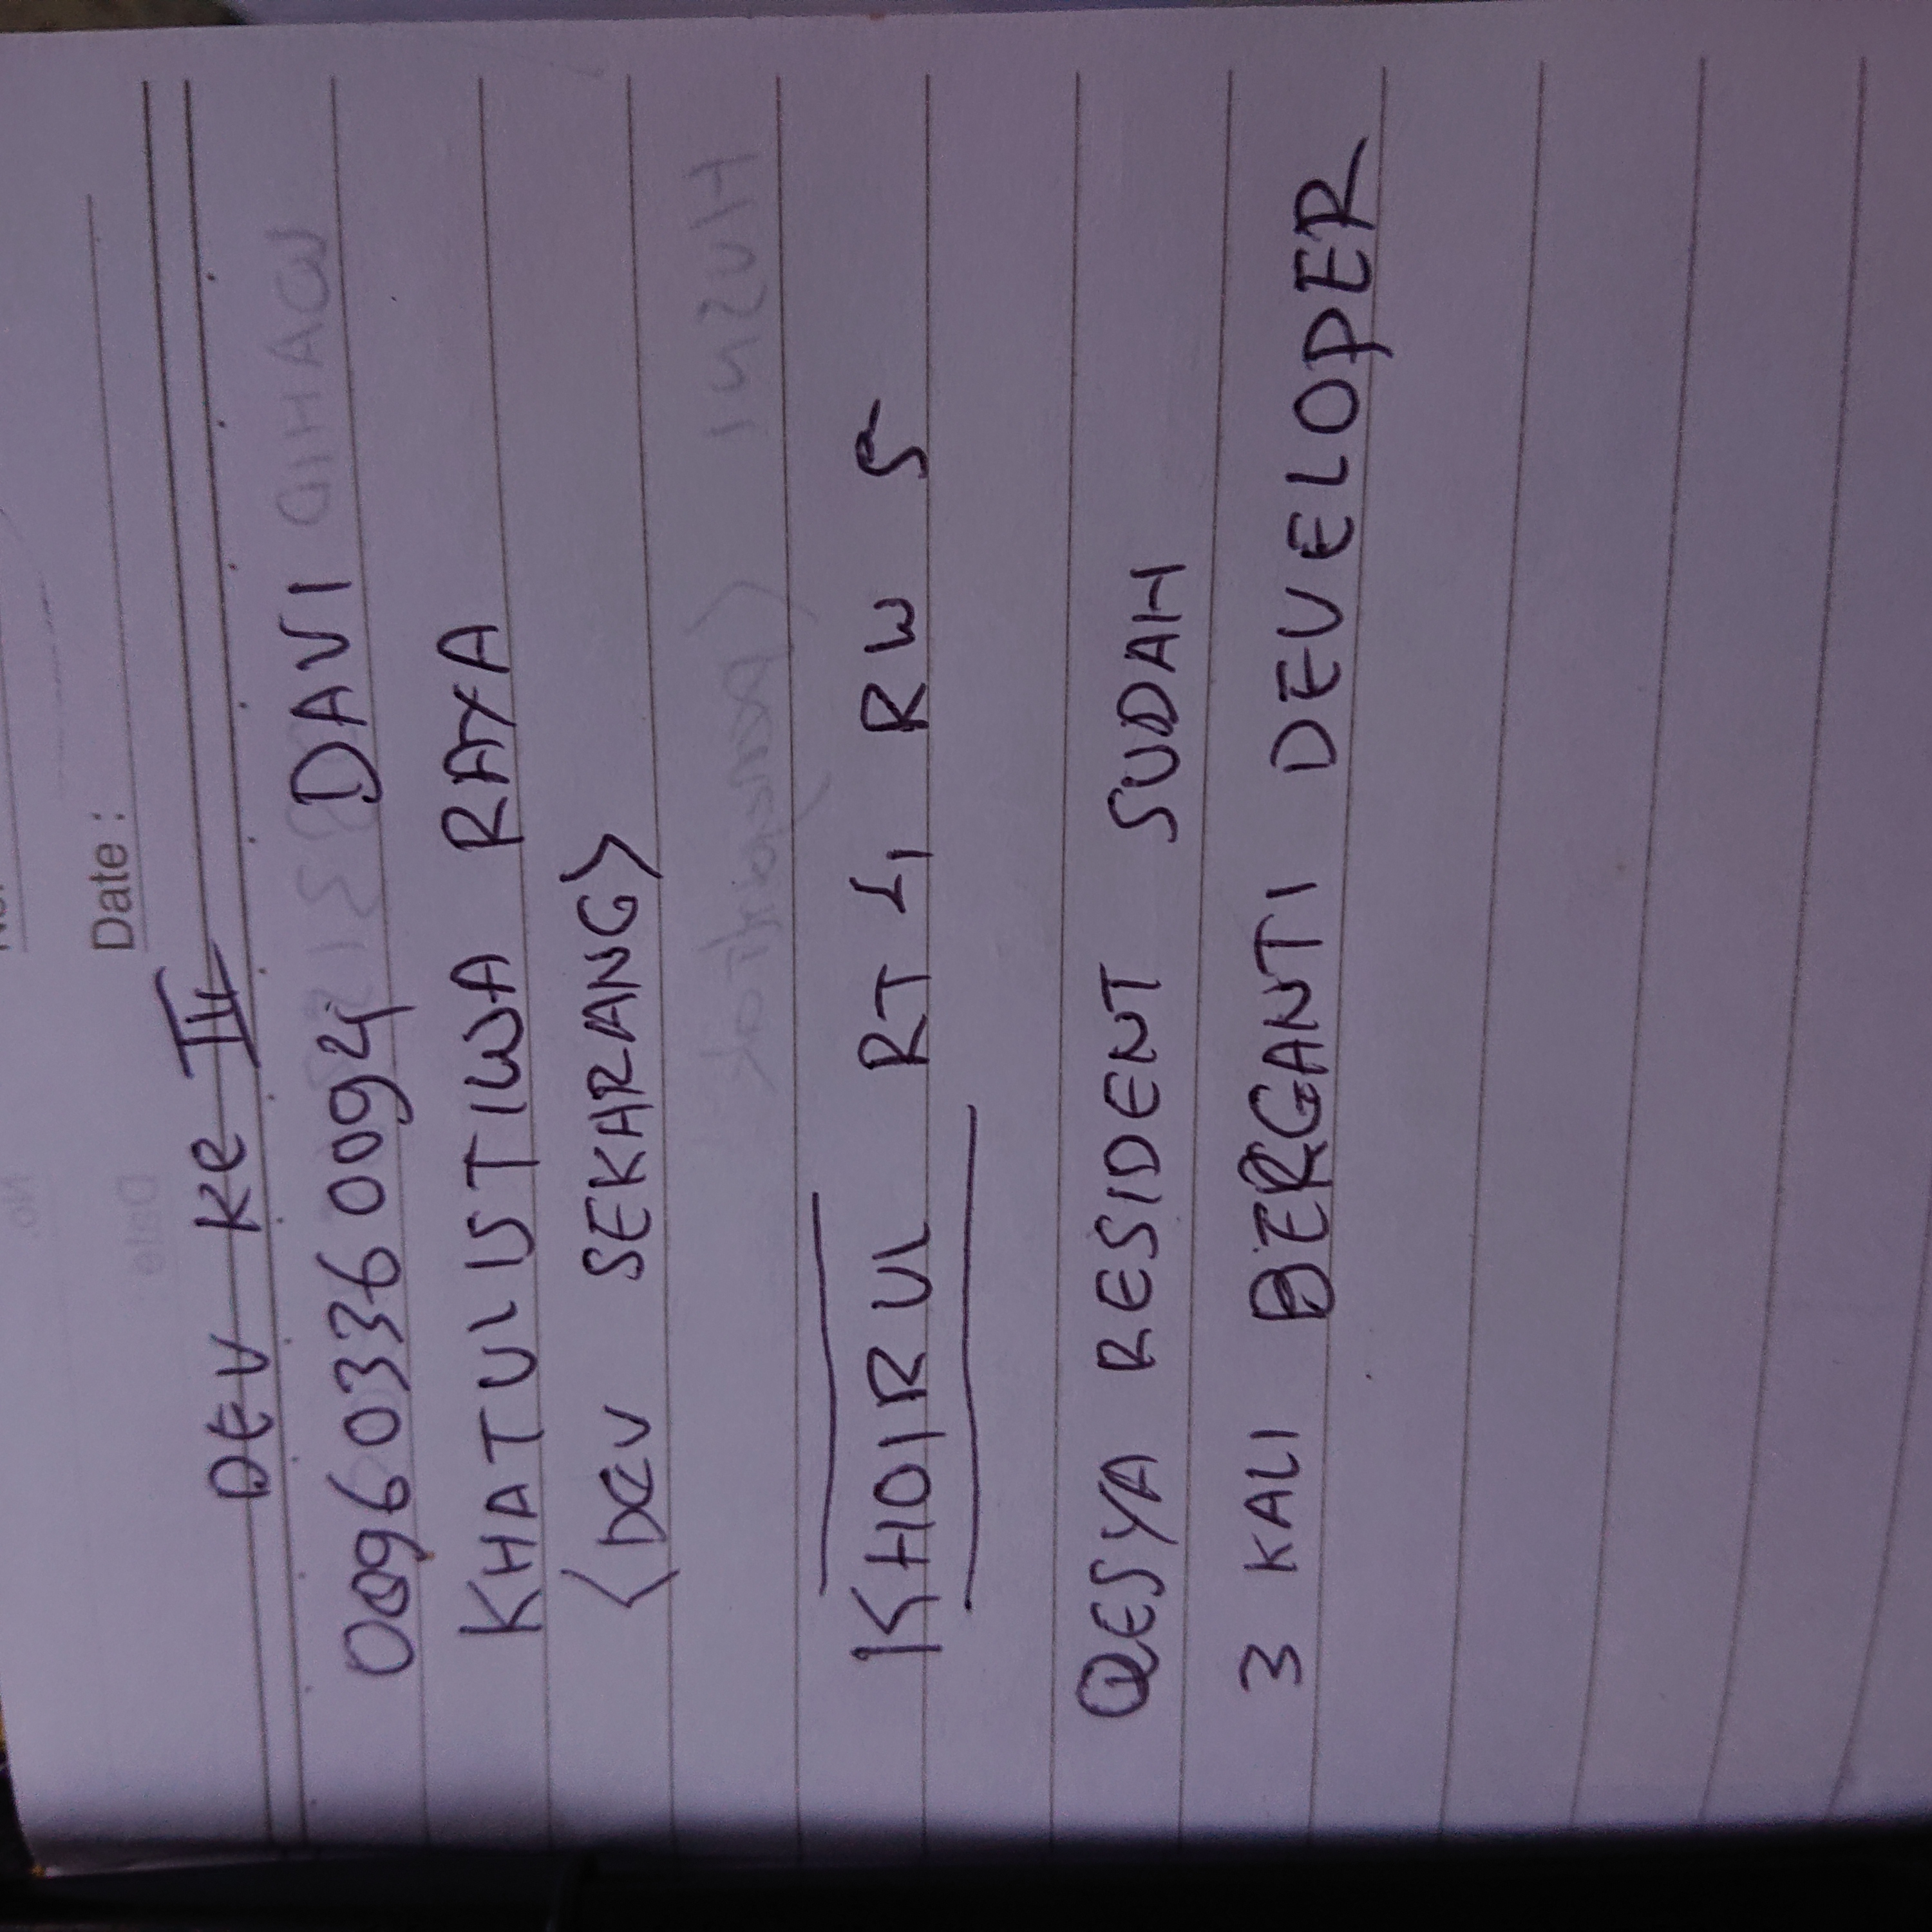 Date :
DEV Ke IV
00960336 0094 DAVI
KHATULISTIWA RAYA
(DEV SEKARANG)
KHOIRUL RT 4, RW 5
QESYA RESIDENT SUDAH
3 KALI BERGANTI DEVELOPER